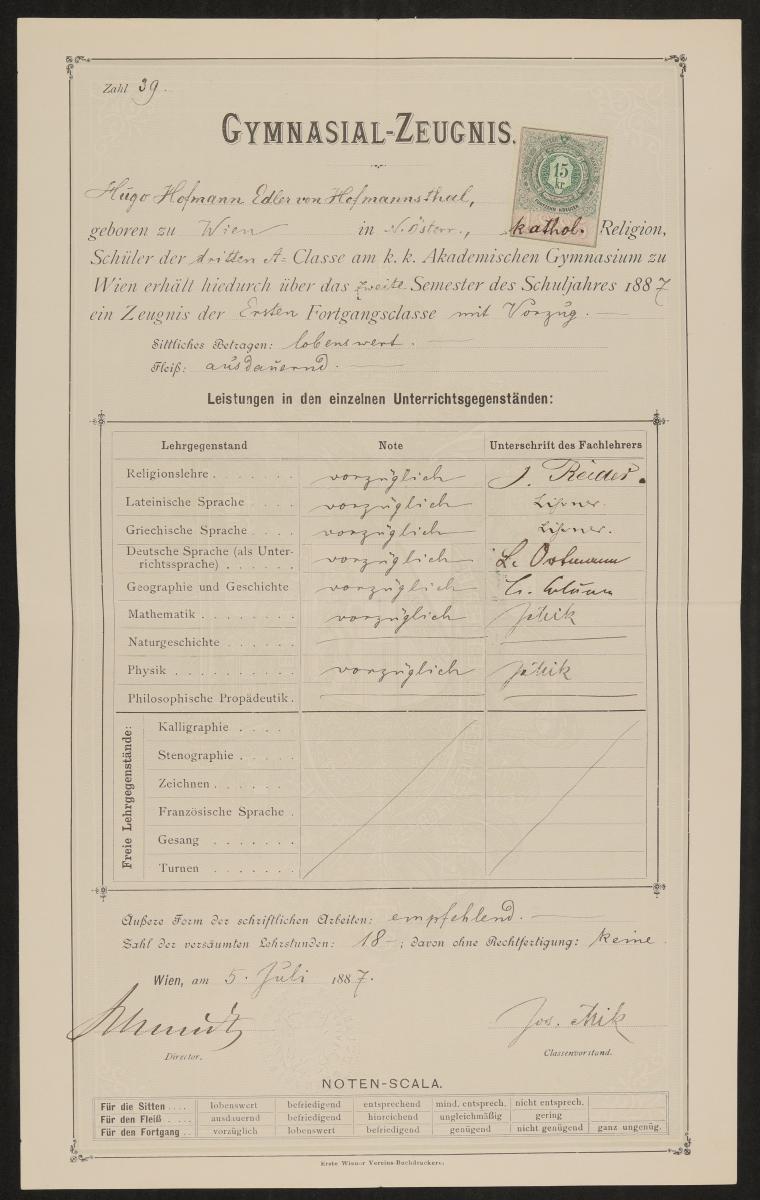 Zahl 39.
GYMNASIAL-ZEUGNIS.
15
kr.
FÜNFZEHN KREUZER
Hugo Hofmann Edler von Hofmannsthal,
geboren zu Wien in N. Österr., kathol. Religion,
Schüler der dritten A= Classe am k. k. Akademischen Gymnasium zu
Wien erhält hiedurch über das zweite Semester des Schuljahres 1887
ein Zeugnis der Ersten Fortgangsclasse mit Vorzug. —
Sittliches Betragen: lobenswert. —
Fleiß: ausdauernd. —
Leistungen in den einzelnen Unterrichtsgegenständen:
Lehrgegenstand Note Unterschrift des Fachlehrers
Religionslehre . . . . . . . vorzüglich
Lateinische Sprache . . . . vorzüglich
Griechische Sprache . . . . vorzüglich
Deutsche Sprache (als Unter-
richtssprache) . . . . . . vorzüglich
Geographie und Geschichte vorzüglich
Mathematik . . . . . . . . vorzüglich
Naturgeschichte . . . . . . —
Physik . . . . . . . . . . vorzüglich
Philosophische Propädeutik . —
Freie Lehrgegenstände:
Kalligraphie . . . .
Stenographie . . . . .
Zeichnen . . . . . .
Französische Sprache .
Gesang . . . . . . .
Turnen . . . . . . .
Äußere Form der schriftlichen Arbeiten: empfehlend. —
Zahl der versäumten Lehrstunden: 18 –; davon ohne Rechtfertigung: keine.
Wien, am 5. Juli 1887.
Jos. Mik
Director. Classenvorstand.
NOTEN-SCALA.
Für die Sitten . . . . lobenswert befriedigend entsprechend mind. entsprech. nicht entsprech.
Für den Fleiß . . . . ausdauernd befriedigend hinreichend ungleichmäßig gering
Für den Fortgang . . vorzüglich lobenswert befriedigend genügend nicht genügend ganz ungenüg.
Erste Wiener Vereins-Buchdruckerei.